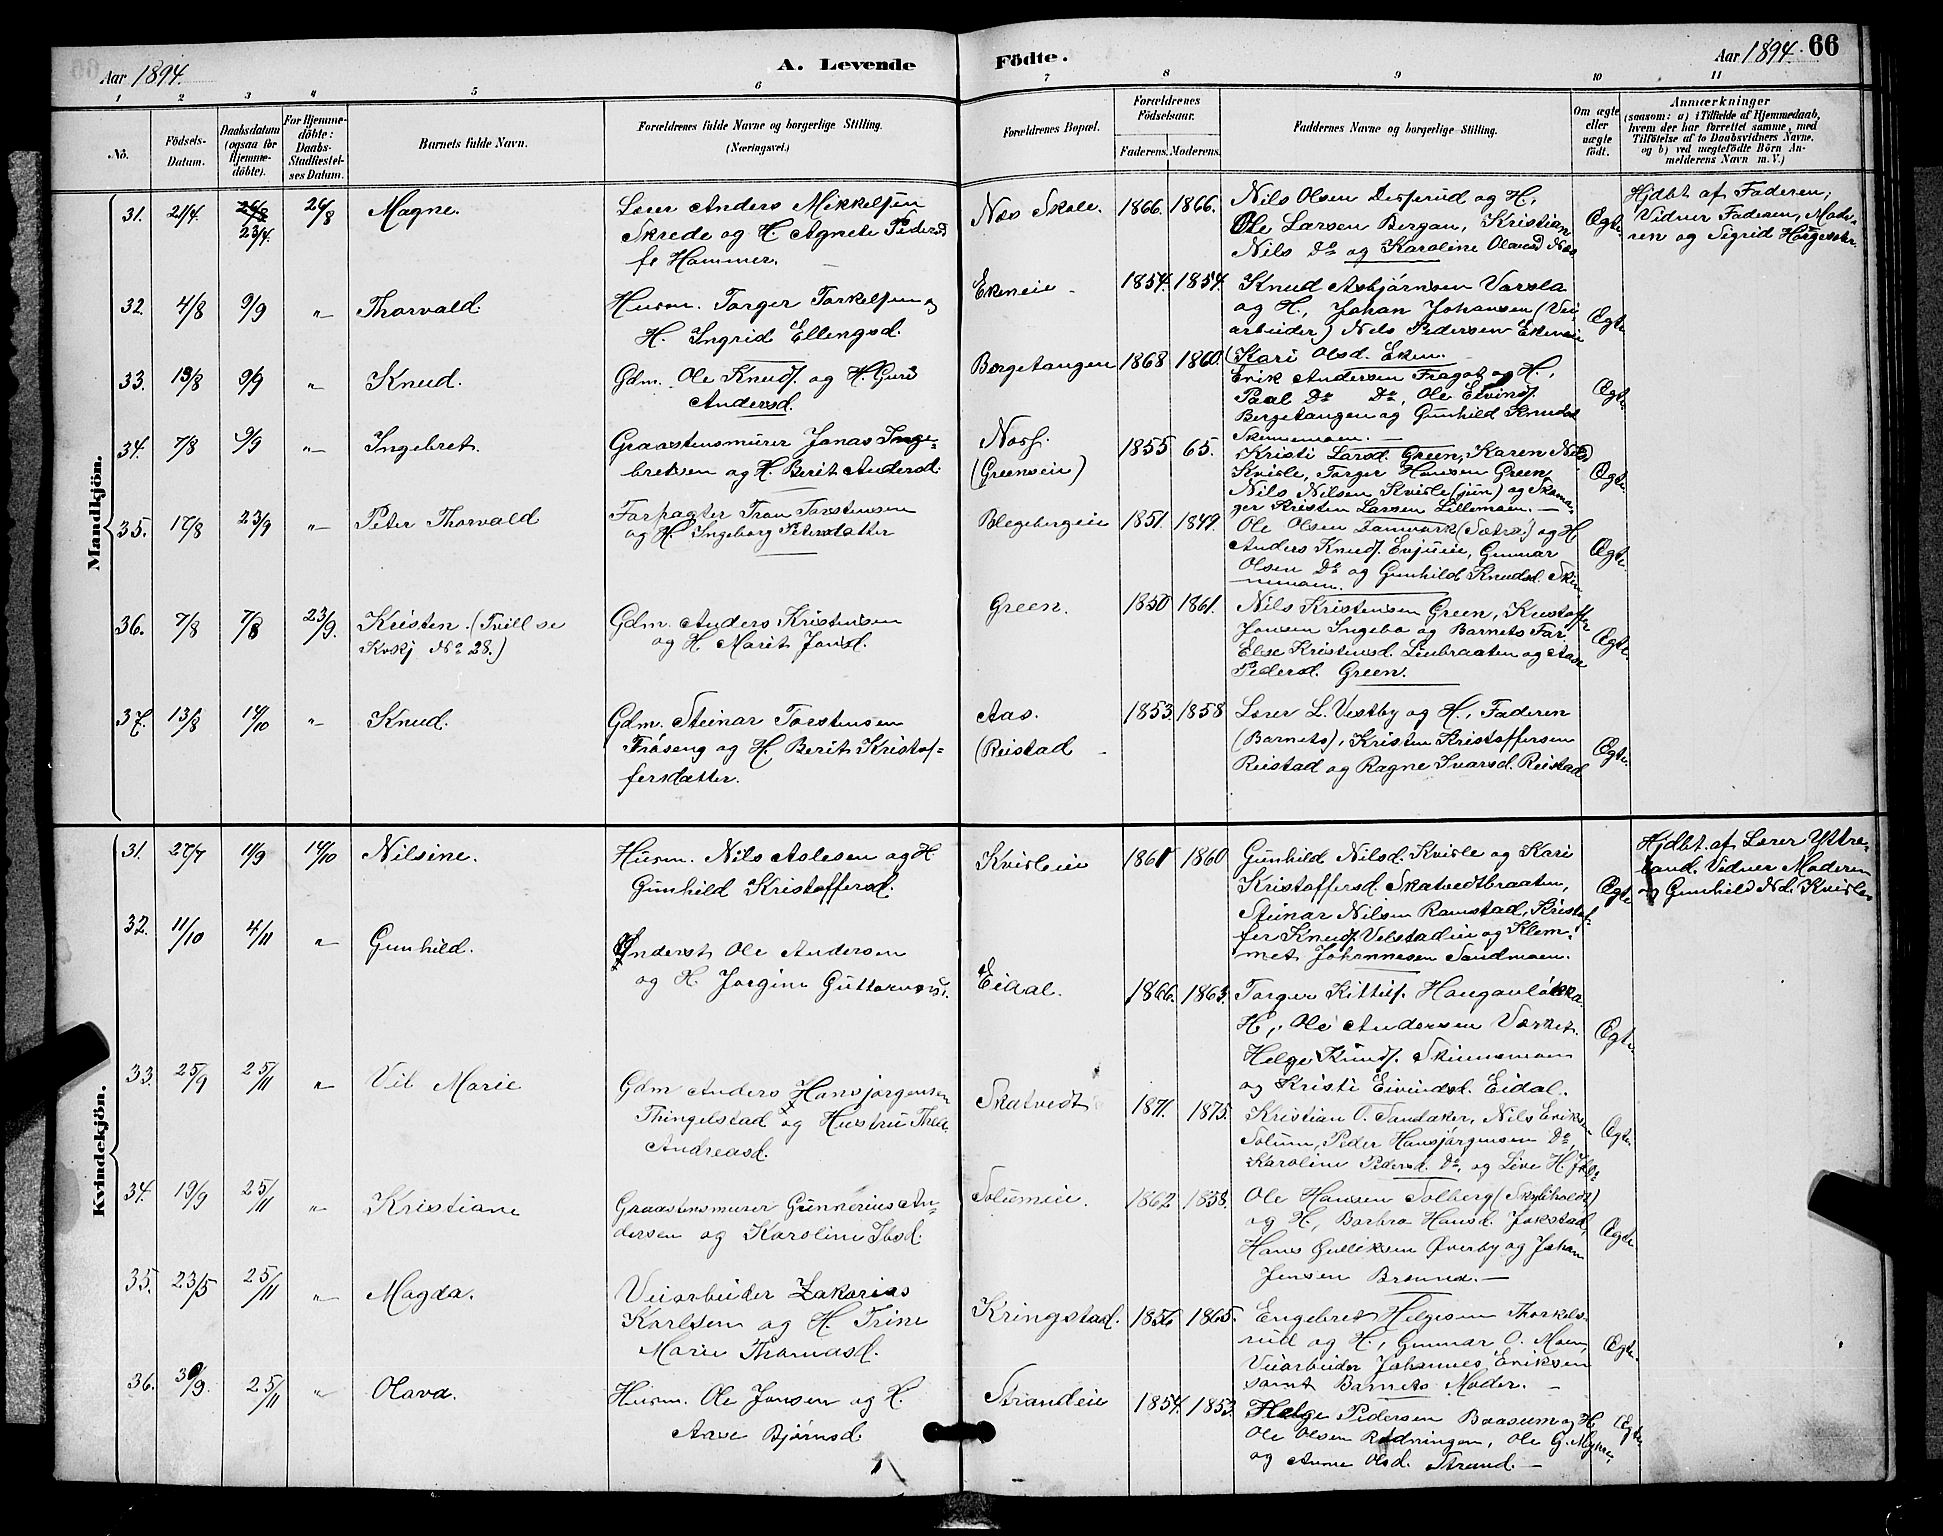 Aar 1894.
A. Levende
Födte.
Aar 1894. 66
1 2 3 4 5 6 7 8 9 10 11
No.
Födsels-Datum.
Daabsdatum (ogsaa for Hjemme-döbte).
For Hjemme-döbte: Daabs-Stadfæstel-ses Datum.
Barnets fulde Navn.
Forældrenes fulde Navne og borgerlige Stilling.
(Næringsvei.)
Forældrenes Bopæl.
Forældrenes Födselsaar.
Faderens. Moderens.
Faddernes Navne og borgerlige Stilling.
Om ægte eller uægte födt.
Anmærkninger
(saasom: a) i Tilfælde af Hjemmedaab,
hvem der har forrettet samme, med
Tilföielse af to Daabsvidners Navne,
og b) ved uægtefödte Börn An-
melderens Navn m. V.)
Mandkjön.
31. 21/4. 26/8 23/4. 26/8 Magne.
Lærer Anders Mikkelsen
Skrede og H. Agnete Pedersd
f. Hammer.
Næs Skole. 1866. 1866.
Nils Olsen og H,
Ole Larsen Bergan, Kristian
Nils Do og Karoline Olavsd Næs
Ægte
Hjdbt af Faderen;
Vidner Faderen, Mode-
ren og Sigrid
32. 4/8 9/9 " Thorvald.
Husm. Torger Torkelsen og
H. Ingrid Ellingsd.
Ekeneie 1854. 1854.
Knud Asbjörnsen Varsla
og H., Johan Johansen (Vei
arbeider) Nils Pedersen Ekeneie
Kari Olsd. Eken.
Ægte
33. 13/8 9/9 " Knud.
Gdm. Ole Knuds. og H. Guri
Andersd.
Bergetangen 1868 1860
Erik Andersen Fragot og H,
Paal Do Do, Ole Eivinds.
Bergetangen og Gunhild Knudsd
Skinnemoen.
Ægte
34. 7/8 9/9 " Ingebret.
Graastensmurer Jonas Inge-
bretsen og H. Berit Andersd.
Norf.
(Greeneie) 1855 65.
Kristi Larsd. Green, Karen Nilsd
Kvisle, Torger Hansen Green,
Nils Nilsen Kvisle (jun) og Skoma-
ger Kristen Larsen Lillemoen.
Ægte.
35. 17/8 23/9 " Peter Thorvald
Forpagter Tron Torstensen
og H. Ingeborg Petersdatter
Blegebergeie 1851. 1849.
Ole Olsen (Sætra) og H
Anders Knuds. Enjueie, Gunnar
Olsen Do og Gunhild Knudsd. Skin
nemoen.
Ægte.
36. 7/8 7/8 23/9. Kristen. (Tvill se
Kvkj No 28.)
Gdm. Anders Kristensen
og H. Marit Jonsd.
Green. 1850 1861.
Nils Kristensen Green, Kristoffer
Jonsen Ingebo og Barnets Far.
Else Kristensd. Liebraaten og Aase
Pedersd. Green.
Ægte.
37. 13/8 14/10 " Knud.
Gdm. Steinar Torstensen
Fröseng og H. Berit Kristof-
fersdatter.
Aas.
(Reistad 1853. 1858
Lærer L. Vestby og H., Faderen
(Barnets), Kristen Kristoffersen
Reistad og Ragne Ivarsd. Reistad
Ægte.
Kvindekjön.
31. 27/7 11/9 14/10 Nilsine.
Husm. Nils Aslesen og H
Gunhild Kristoffersd.
Kvisleeie 1861 1860
Gunhild Nilsd. Kvisle og Kari
Kristoffersd. Skatvedtbraaten,
Steinar Nilsen Ramstad, Kristof-
fer Knuds. Velstadeie og Klem-
met Johannesen Sandmoen.
Ægte
Hjdbt. af Lærer Yttre-
sand. Vidner Moderen
og Gunhild Nd. Kvisle
32. 11/10 4/11 " Gunhild.
Inderst Ole Andersen
og H. Jorgine Guttormsd.
Eidal. 1866. 1863.
Torger Kittils.
H., Ole Andersen Værket.
Helge Knuds. Skinnemoen
og Kristi Eivindsd. Eidal.
Ægte.
33. 25/9 25/11 " Vil Marie
Gdm Anders Hansjörgensen
Thingelstad og Hustru Thea
Andreasd.
Skatvedt 1871. 1875.
Kristian O. Sandaker, Nils Eriksen
Solum, Peder Hansjörgensen Do,
Karoline Pedersd. Do, og Live H.
Ægte.
34. 19/9 25/11 " Kristiane
Graastensmurer Gunnerius An-
dersen og Karoline Ibsd.
Solumeie. 1862 1858.
Ole Hansen Solberg
og H, Barbro Hansd. Jokstad,
Hans Gulliksen Överby og Johan
Jensen Brænna.
Ægte
35. 23/5 25/11 " Magda.
Veiarbeider Zakarias
Karlsen og H. Trine
Marie Thomasd.
Kringstad. 1856 1865.
Engebret Helgesen Thorkels-
rud og H., Gunnar O. Moen,
Veiarbeider Johannes Eriksen
samt Barnets Moder.
Ægte.
36. 30/9. 25/11 " Olava.
Husm. Ole Jonsen og H.
Anne Bjørnsd.
Strandeie 1854. 1853.
Helge Pedersen Baasum og H
Ole Olsen Rudningen, Ole G. Myhre,
og Anne Olsd. Strand.
Ægte